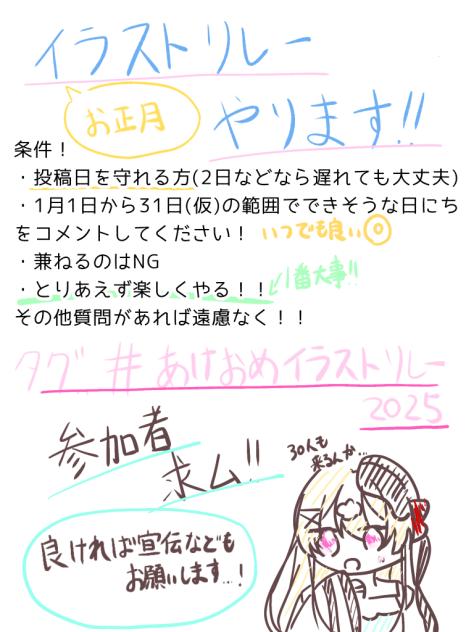 イラストリレー
お正月
やります!!
条件！
・投稿日を守れる方(2日などなら遅れても大丈夫)
・1月1日から31日(仮)の範囲でできそうな日にち
をコメントしてください！ いつでも良い◎
・兼ねるのはNG
・とりあえず楽しくやる！！ 1番大事!!
その他質問があれば遠慮なく！！
タグ #あけおめイラストリレー
2025
参加者
求ム!!
30人も
来るんか…
良ければ宣伝なども
お願いします…!